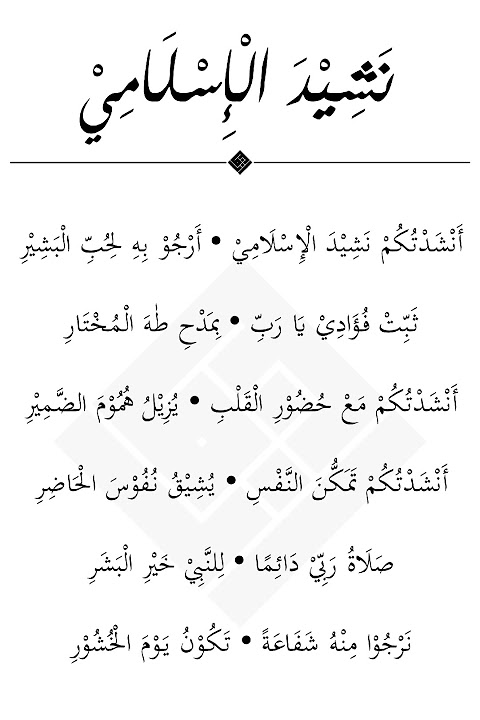 نَشِيْدَ الْإِسْلَامِيْ
أَنْشَدْتُكُمْ نَشِيْدَ الْإِسْلَامِيْ • أَرْجُوْ بِهِ لِحُبِّ الْبَشِيْرِ
ثَبِّتْ فُؤَادِيْ يَا رَبِّ • بِمَدْحِ طٰهَ الْمُخْتَارِ
أَنْشَدْتُكُمْ مَعْ حُضُوْرِ الْقَلْبِ • يُزِيْلُ هُمُوْمَ الضَّمِيْرِ
أَنْشَدْتُكُمْ تَمَكُّنَ النَّفْسِ • يُشِيْقُ نُفُوْسَ الْحَاضِرِ
صَلَاةُ رَبِّيْ دَائِمًا • لِلنَّبِيْ خَيْرِ الْبَشَرِ
نَرْجُوْا مِنْهُ شَفَاعَةً • تَكُوْنُ يَوْمَ الْحُشُوْرِ